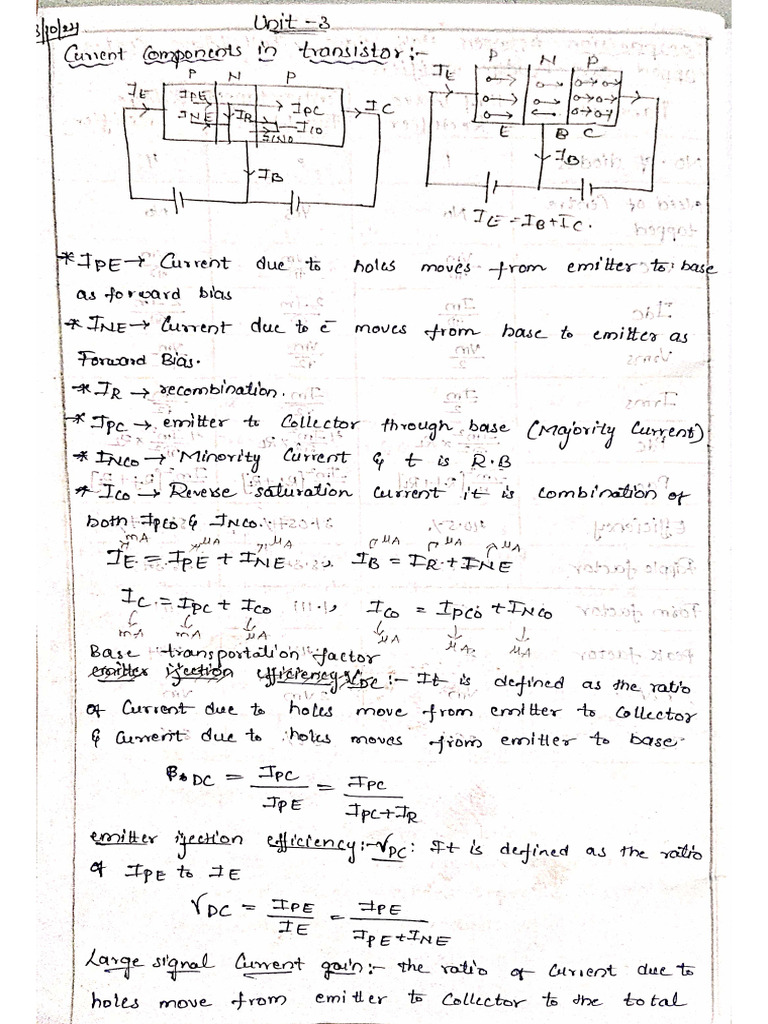 Unit-3
Current Components in transistor:-
P N P
P N P
IE IPE IPC IC
INE IR ICO
INCO
IB
IE
E B C
IB
IE = IB + IC.
* IPE → Current due to holes moves from emitter to base
as forward bias
* INE → Current due to e̅ moves from base to emitter as
Forward Bias.
* IR → recombination.
* IPC → emitter to Collector through base (Majority Current)
* INCO → Minority Current & t is R.B
* ICO → Reverse saturation current it is combination of
both IPCO & INCO.
mA μA μA μA μA μA
IE = IPE + INE , IB = IR + INE
IC = IPC + ICO , ICO = IPCO + INCO
mA mA μA μA μA μA
Base transportation factor
emitter ijection efficiency γDC :- It is defined as the ratio
of current due to holes move from emitter to collector
& current due to holes moves from emitter to base.
β*DC = IPC / IPE = IPC / IPC + IR
emitter ijection efficiency:- γDC: It is defined as the ratio
of IPE to IE
γDC = IPE / IE = IPE / IPE + INE
Large signal Current gain:- the ratio of current due to
holes move from emitter to collector to the total